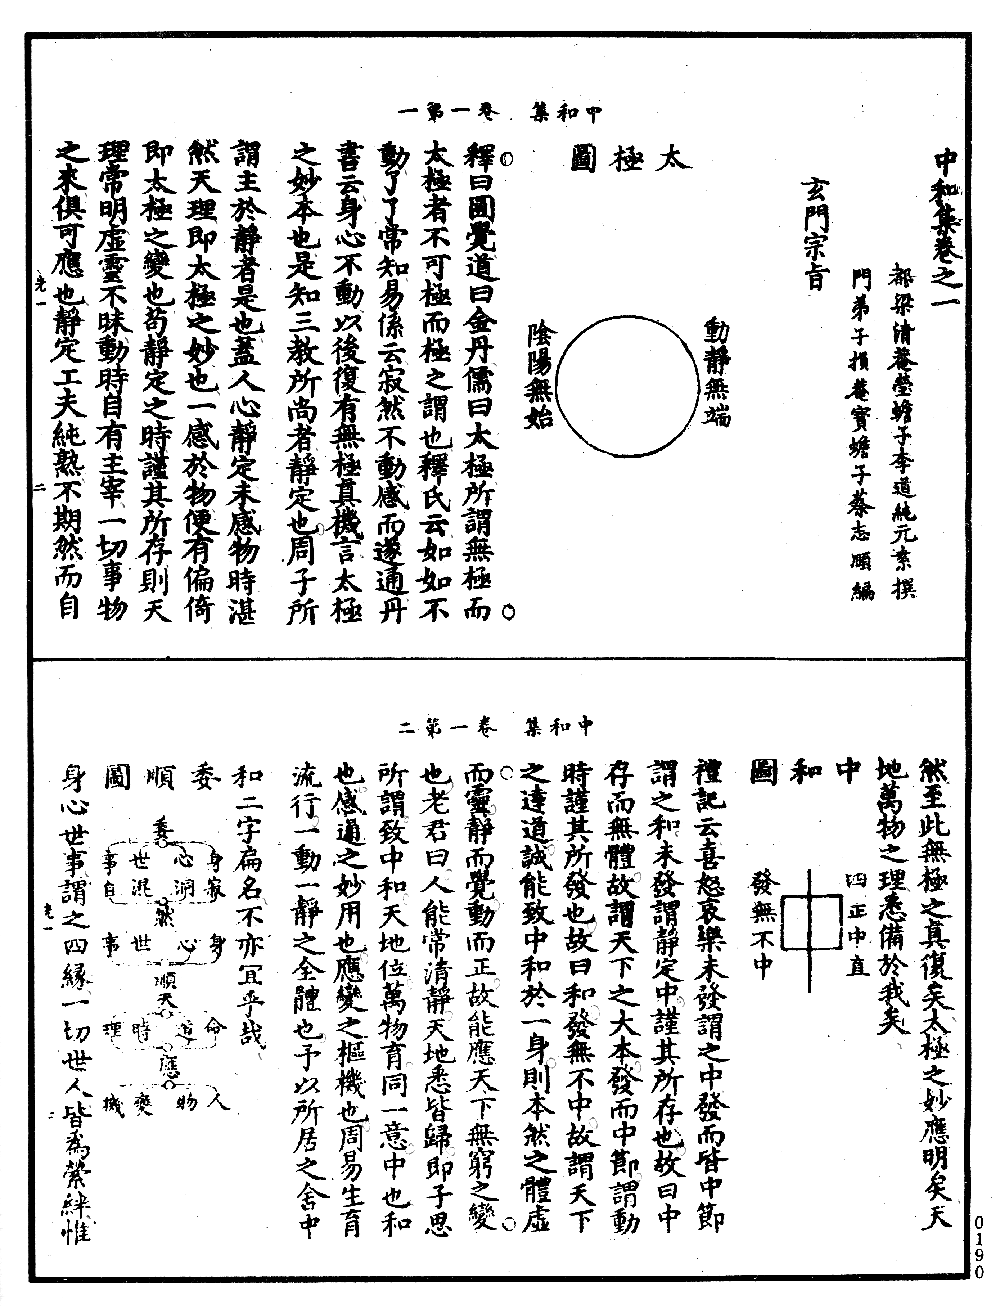 中和集　卷一第一
中和集卷之一
都梁清菴瑩蟾子李道純元素撰
門弟子損菴寶蟾子蔡志頤編
玄門宗旨
太極圖
動靜無端
陰陽無始
釋曰圓覺道曰金丹儒曰太極所謂無極而
太極者不可極而極之謂也釋氏云如如不
動了了常知易係云寂然不動感而遂通丹
書云身心不動以後復有無極真機言太極
之妙本也是知三教所尚者靜定也周子所
謂主於靜者是也蓋人心靜定未感物時湛
然天理即太極之妙也一感於物便有偏倚
即太極之變也苟靜定之時謹其所存則天
理常明虛靈不昧動時自有主宰一切事物
之來俱可應也靜定工夫純熟不期然而自
光一
二
中和集　卷一第二
然至此無極之真復矣太極之妙應明矣天
地萬物之理悉備於我矣
中和圖
四正中直
發無不中
禮記云喜怒哀樂未發謂之中發而皆中節
謂之和未發謂靜定中謹其所存也故曰中
存而無體故謂天下之大本發而中節謂動
時謹其所發也故曰和發無不中故謂天下
之達道誠能致中和於一身則本然之體虛
而靈靜而覺動而正故能應天下無窮之變
也老君曰人能常清靜天地悉皆歸即子思
所謂致中和天地位萬物育同一意中也和
也感通之妙用也應變之樞機也周易生育
流行一動一靜之全體也予以所居之舍中
和二字扁名不亦宜乎哉
委順圖
委
身心世事
寂洞混自
然
身心世事
順天
命道時理
應
人物變機
身心世事謂之四緣一切世人皆為縈絆惟
光一
0190